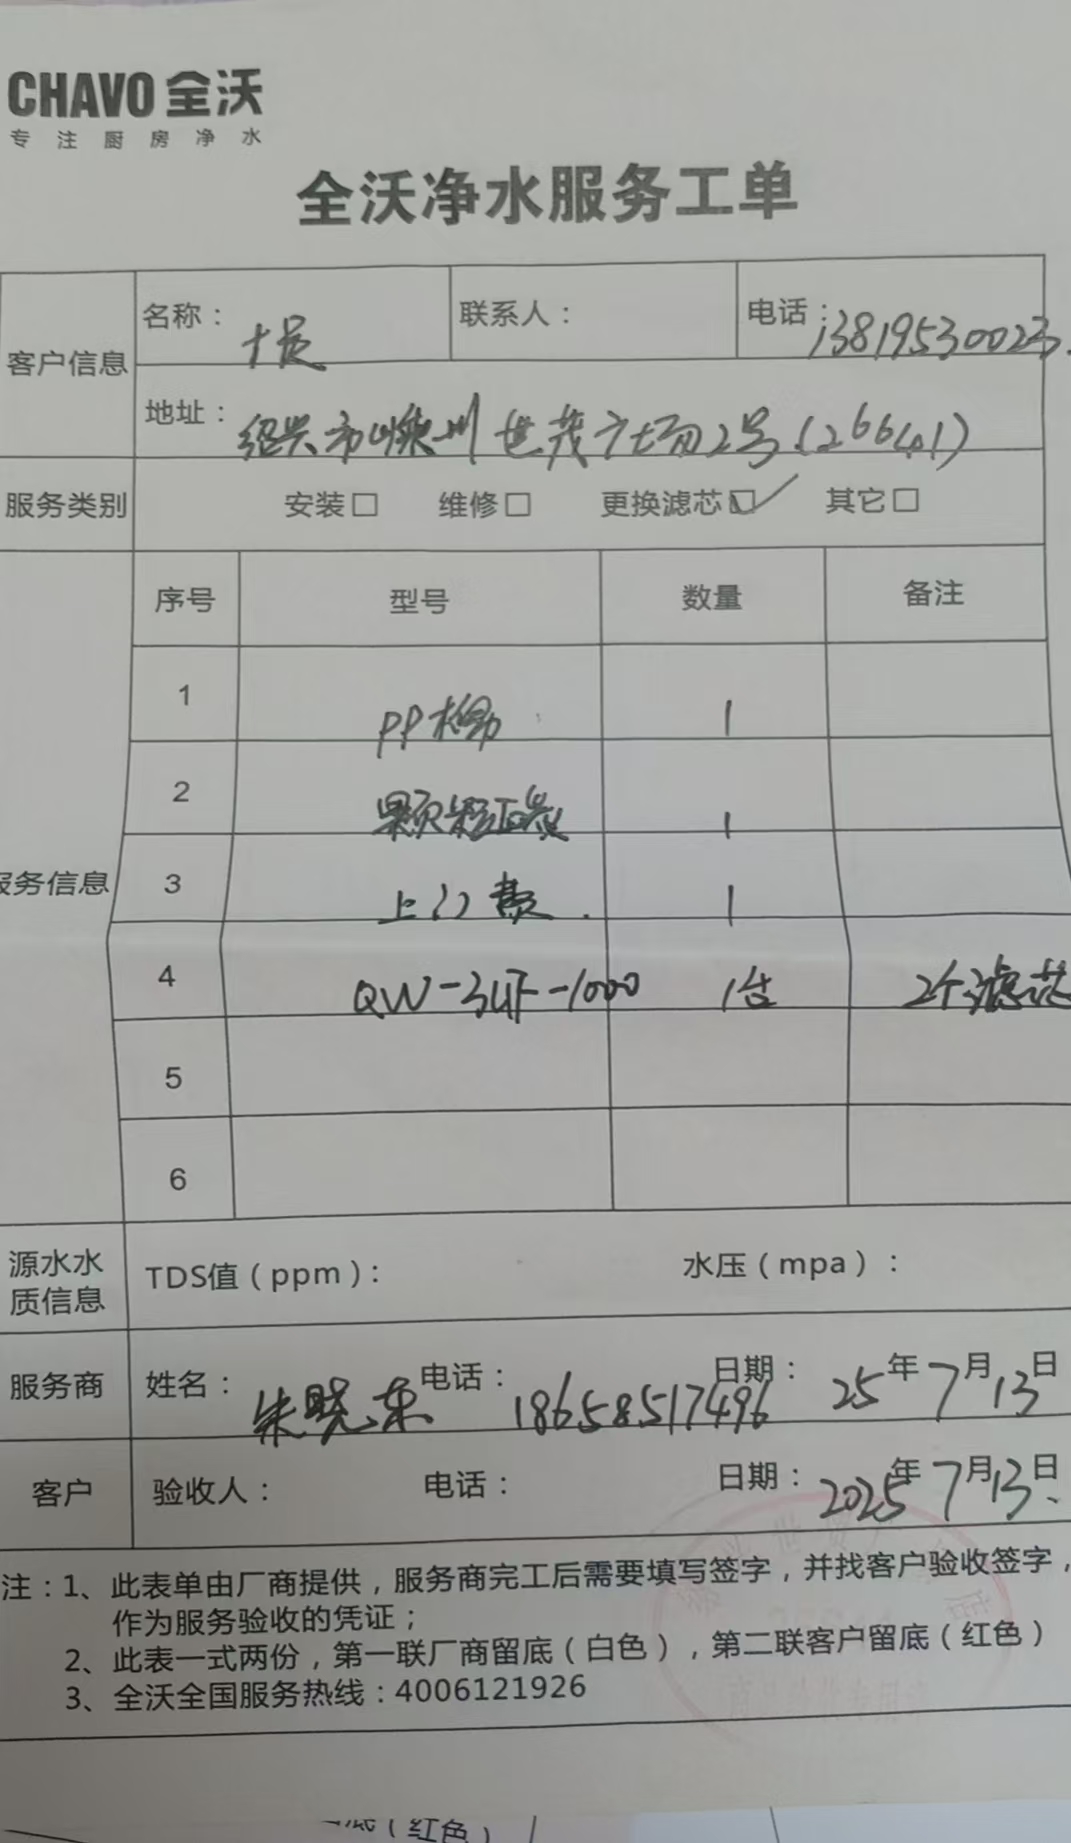 CHAVO 全沃
专注厨房净水
全沃净水服务工单
客户信息
名称： 联系人： 电话：13819530023
地址：绍兴市 世茂广场2号（26641）
服务类别 安装□ 维修□ 更换滤芯☑ 其它□
服务信息
序号 型号 数量 备注
1 PP棉 1
2 颗粒 炭 1
3 上门费 1
4 QW-3UF-1000 1台 2个滤芯
5
6
源水水质信息 TDS值（ppm）： 水压（mpa）：
服务商 姓名：朱晓东 电话：18658517496 日期：25年7月13日
客户 验收人： 电话： 日期：2025年7月13日
注：1、此表单由厂商提供，服务商完工后需要填写签字，并找客户验收签字，
作为服务验收的凭证；
2、此表一式两份，第一联厂商留底（白色），第二联客户留底（红色）
3、全沃全国服务热线：4006121926
底（红色）